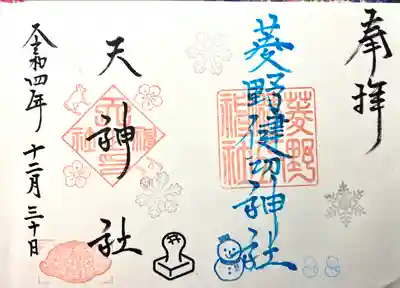 奉拝
菱野健功神社
菱野
天神社
令和四年 十二月三十日